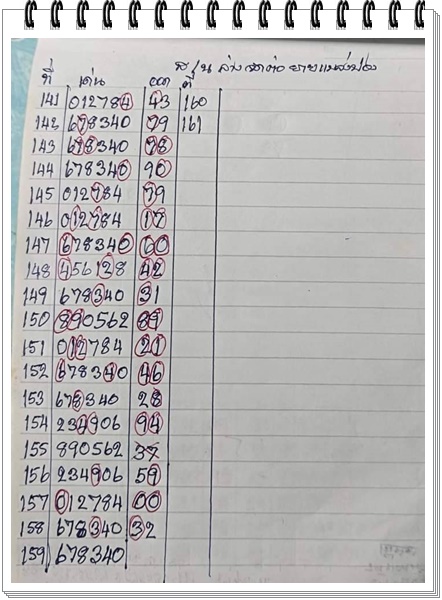 ที่ เด่น ออก ที่
141 012784 43 160
142 678340 79 161
143 678340 98
144 678340 90
145 012784 79
146 012784 17
147 678340 60
148 456128 42
149 678340 31
150 890562 89
151 012784 21
152 678340 46
153 678340 28
154 234906 94
155 890562 37
156 234906 59
157 012784 00
158 678340 32
159 678340